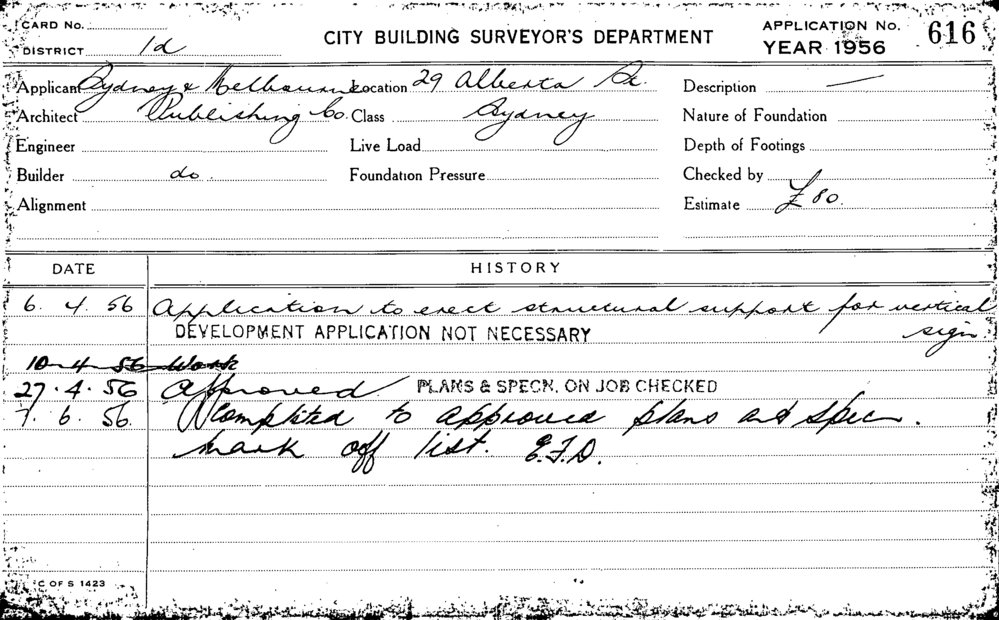 CARD No.
DISTRICT 1d
CITY BUILDING SURVEYOR'S DEPARTMENT
APPLICATION No. 616
YEAR 1956
Applicant Sydney & Melbourne Location 29 Alberta St. Description —
Architect Publishing Co. Class Sydney Nature of Foundation
Engineer Live Load Depth of Footings
Builder do. Foundation Pressure Checked by
Alignment Estimate £80.
DATE HISTORY
6. 4. 56 Application to erect structural support for vertical
DEVELOPMENT APPLICATION NOT NECESSARY sign
10-4-56 Work
27.4.56 Approved PLANS & SPECN. ON JOB CHECKED
7. 6. 56. Completed to approved plans and spec.
mark off list. E.F.D.
C OF S 1423